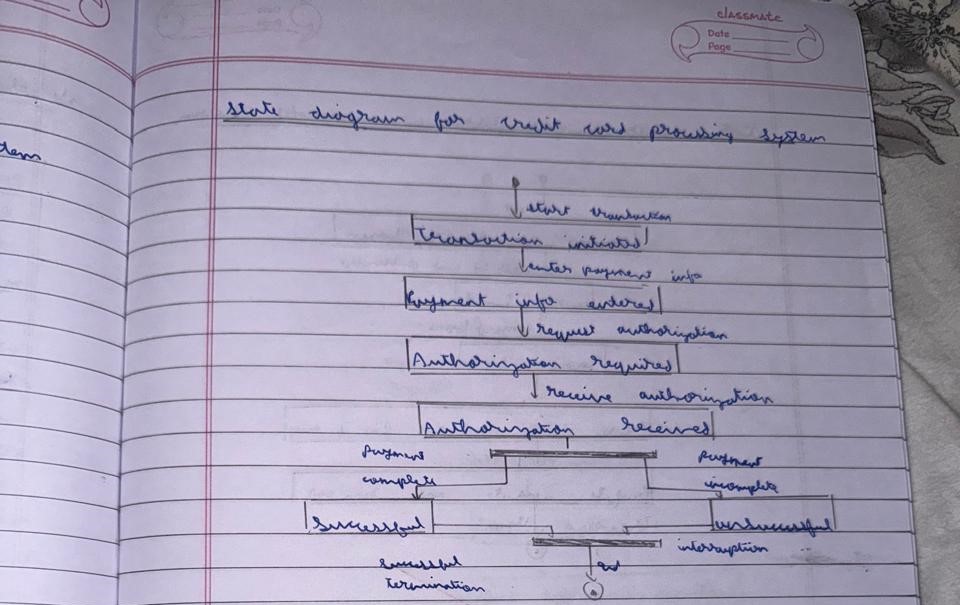 classmate
Date
Page
State diagram for credit card processing system
tem
start transaction
Transaction initiated
enter payment info
Payment info entered
request authorization
Authorization required
receive authorization
Authorization received
payment complete
payment incomplete
Successful
unsuccessful
interruption
successful termination
end